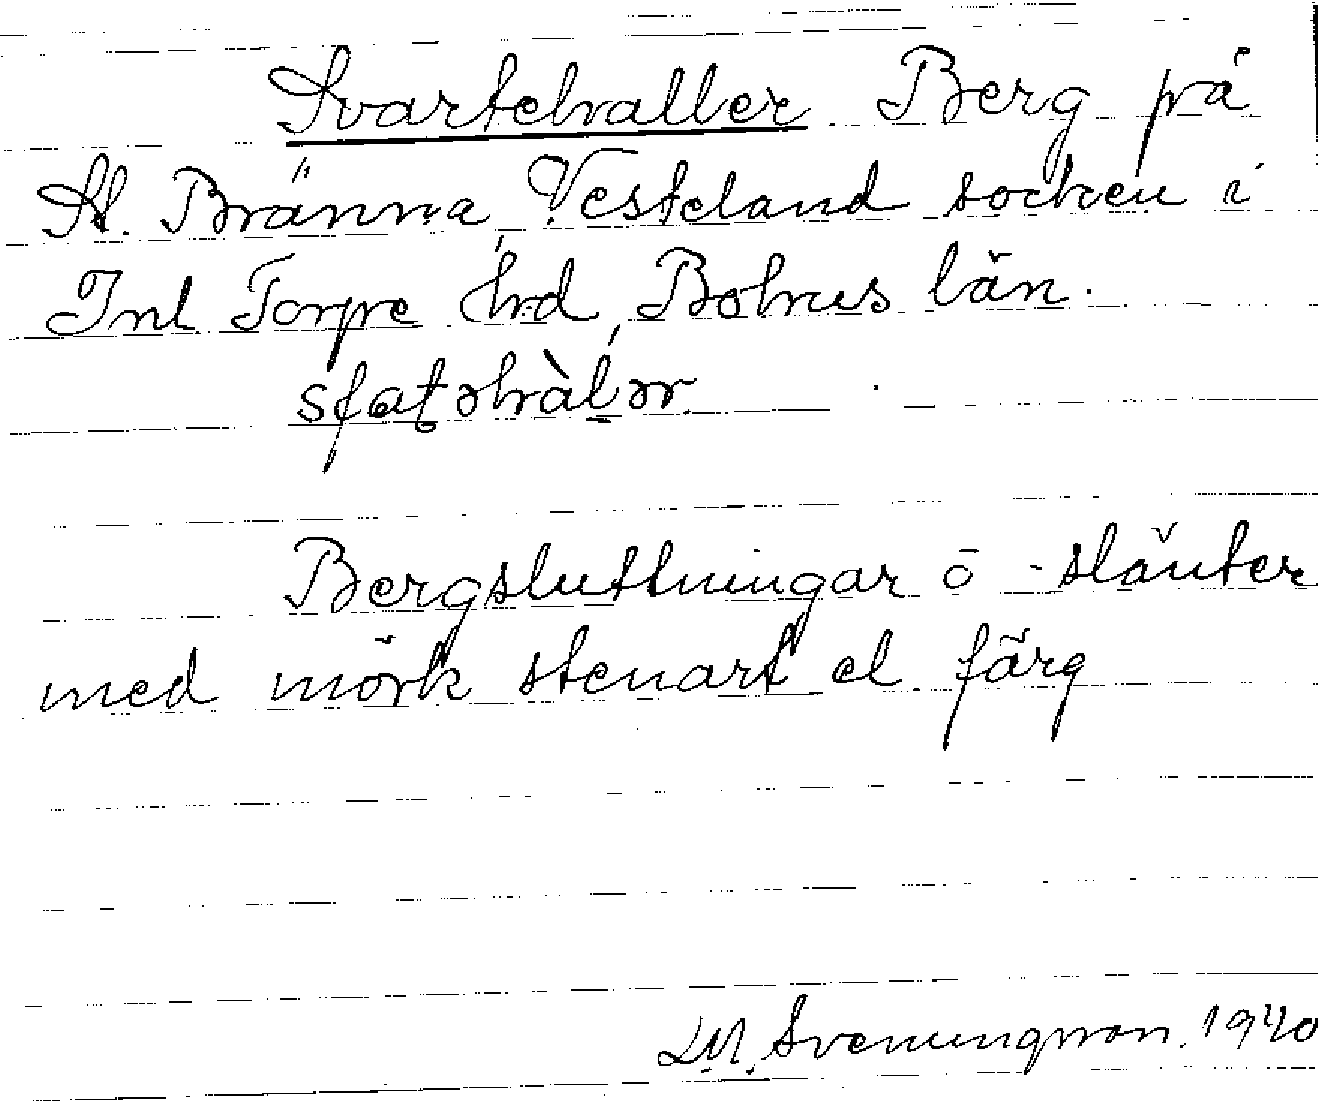 Svartehaller Berg på
St. Bränna, Vesteland socken i
Inl Torpe hrd, Bohus län.
Bergsluttningar ō slänter
med mörk stenart el. färg
Svenungsson. 1940